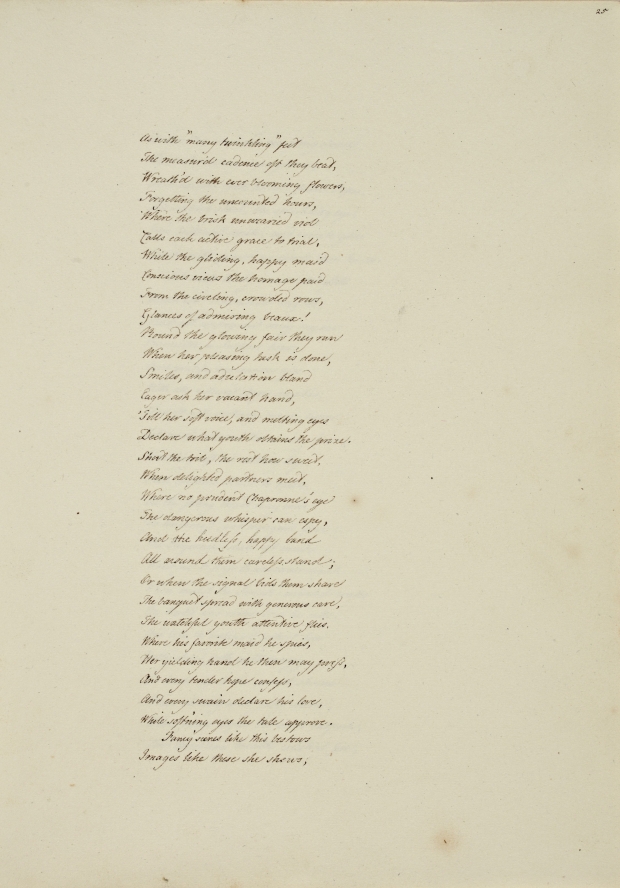 25
As with "many twinkling" feet
The measur'd cadence oft they beat,
Wreath'd with ever blooming flowers,
Forgetting the uncounted hours,
Where the brisk unwearied viol
Calls each active grace to trial,
While the gliding, happy maid
Conscious views the homage paid
From the circling, crowded rows,
Glances of admiring beaux!
Round the glowing fair they run
When her pleasing task is done,
Smiles, and adulation bland
Eager ask her vacant hand,
'Till her soft voice, and melting eyes
Declare what youth obtains the prize.
Short the toil, the rest how sweet.
When delighted partners meet,
Where no prudent Chaperonne's eye
The dangerous whisper can espy,
And the heedless, happy band
All around them careless stand;
Or when the signal bids them share
The banquet spread with generous care,
The watchful youth attentive flies.
Where his favorite maid he spies,
Her yielding hand he then may press,
And every tender hope confess,
And every swain declare his love,
While soft'ning eyes the tale approve.
Fancy scenes like this bestows
Images like these she shews,